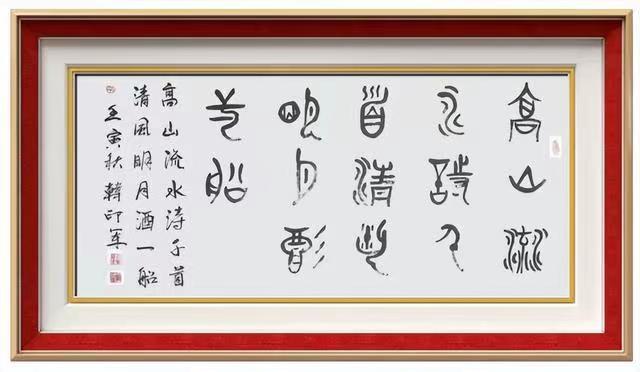 高山流
水詩千
首清風
明月酒
一船
高山流水詩千首
清風明月酒一船
壬寅秋韓印軍